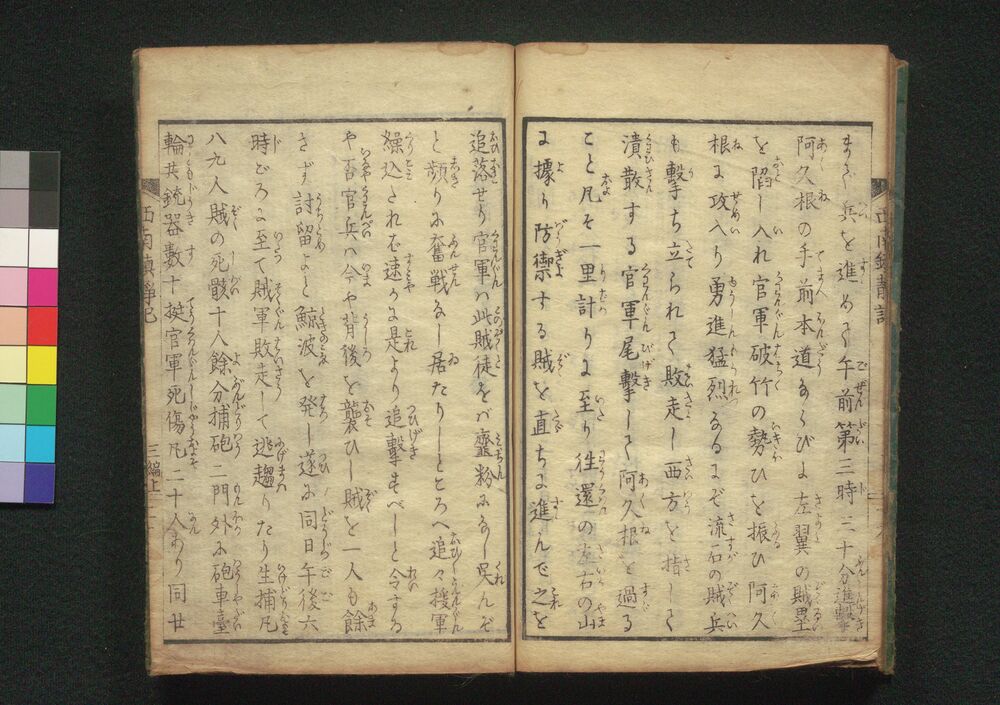 また兵を進めて午前第三時三十分進撃
阿久根の手前本道ならびに左翼の賊塁
を陷し入れ官軍破竹の勢ひを振ひ阿久
根に攻入り勇進猛烈なるにぞ流石の賊兵
も擊ち立られて敗走し西方を指して
潰散する官軍尾擊して阿久根を過る
こと凡そ一里計りに至り徃還の左右の山
に據り防禦する賊を直ちに進んで之を
追落せり官軍ハ此賊徒をバ齏粉になし呉んぞ
と頻りに奮戦なし居たりしところへ追々援軍
繰込されば速かに是より追擊すべしと令する
や否官兵ハ今や背後を襲ひし賊を一人も餘
さず討留よと鯨波を発し遂に同日午後六
時ごろに至て賊軍敗走して逃趨りたり生捕凡
八九人賊の死骸十八餘分捕砲二門外に砲車臺
輪共銃器数十挺官軍死傷凡二十人あり同廿
西南鎮静記
三編上